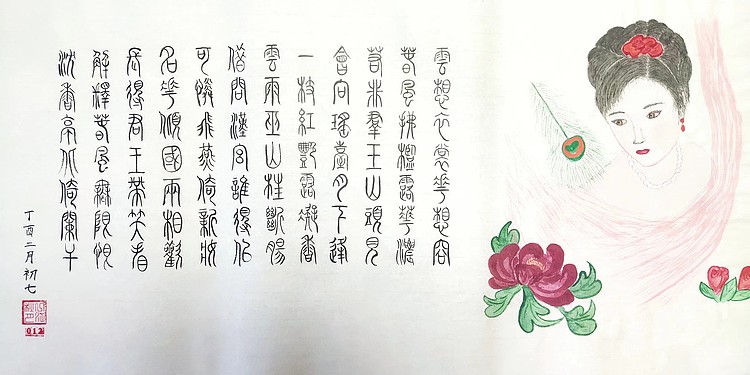 雲想衣裳華想容
春風拂檻露華濃
若非羣玉山頭見
會向瑤臺月下逢
一枝紅豔露凝香
雲雨巫山枉斷腸
借問漢宮誰得似
可憐飛燕倚新妝
名華傾國兩相歡
長得君王帶笑看
解釋春風無限恨
沈香亭北倚闌干
丁酉二月初七
012